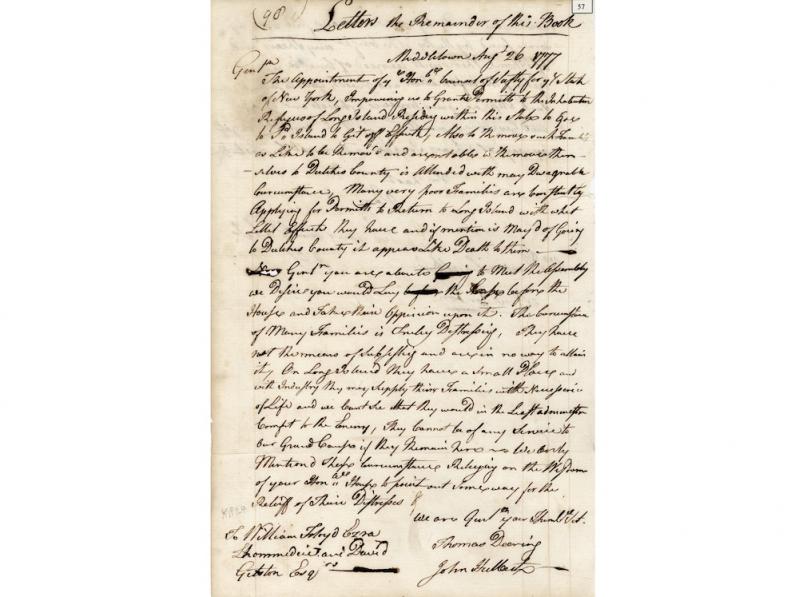 57
(98) Letters the Remainder of this Book
Middletown Augt 26 1777
Gentn
The Appointment of ye Honble Councel of Safty for ye State
of New York, Impowring us to Grant Permitts to the Inhabitan
Refugees of Long Island Residing within this State to Goe
to sd Island to Git off Effects, Also to Remove such Famil
as Like to be Remov'd and are not able to Remove them
selves to Dutches County is Attended with many Disagreable
Curcumstance, Many very poor Families are Constantly
Applying for Permitts to Return to Long Island with what
Littel Effects they have and if mention is May'd of Going
to Dutches County it appears Like Death to them
Gentn you are about to to Meet the Assembly
we Desire you would Lay the Case before the
House and Take their Oppinion upon it. The Curcumstan
of Many Families is Truley Distressing, they have
not the means of Subsisting and are in no way to attain
it, On Long Island they have a Small Place and
with Industry they may Supply their Families with Necessaries
of Life and we Cant See that they would in the Least administer
Comfort to the Enemy, They Cannot be of any Service to
Our Grand Cause if they Remain here We only
Mention'd these Curcumstance Relying on the Wisdom
of your Honble House to point out Some way for the
Relieff of Their Distresses
We are Gentn your Humble St.
To William Floyd Ezra
Lhommedieu and David
Gelston Esqrs
Thomas Deering
John Hulbert